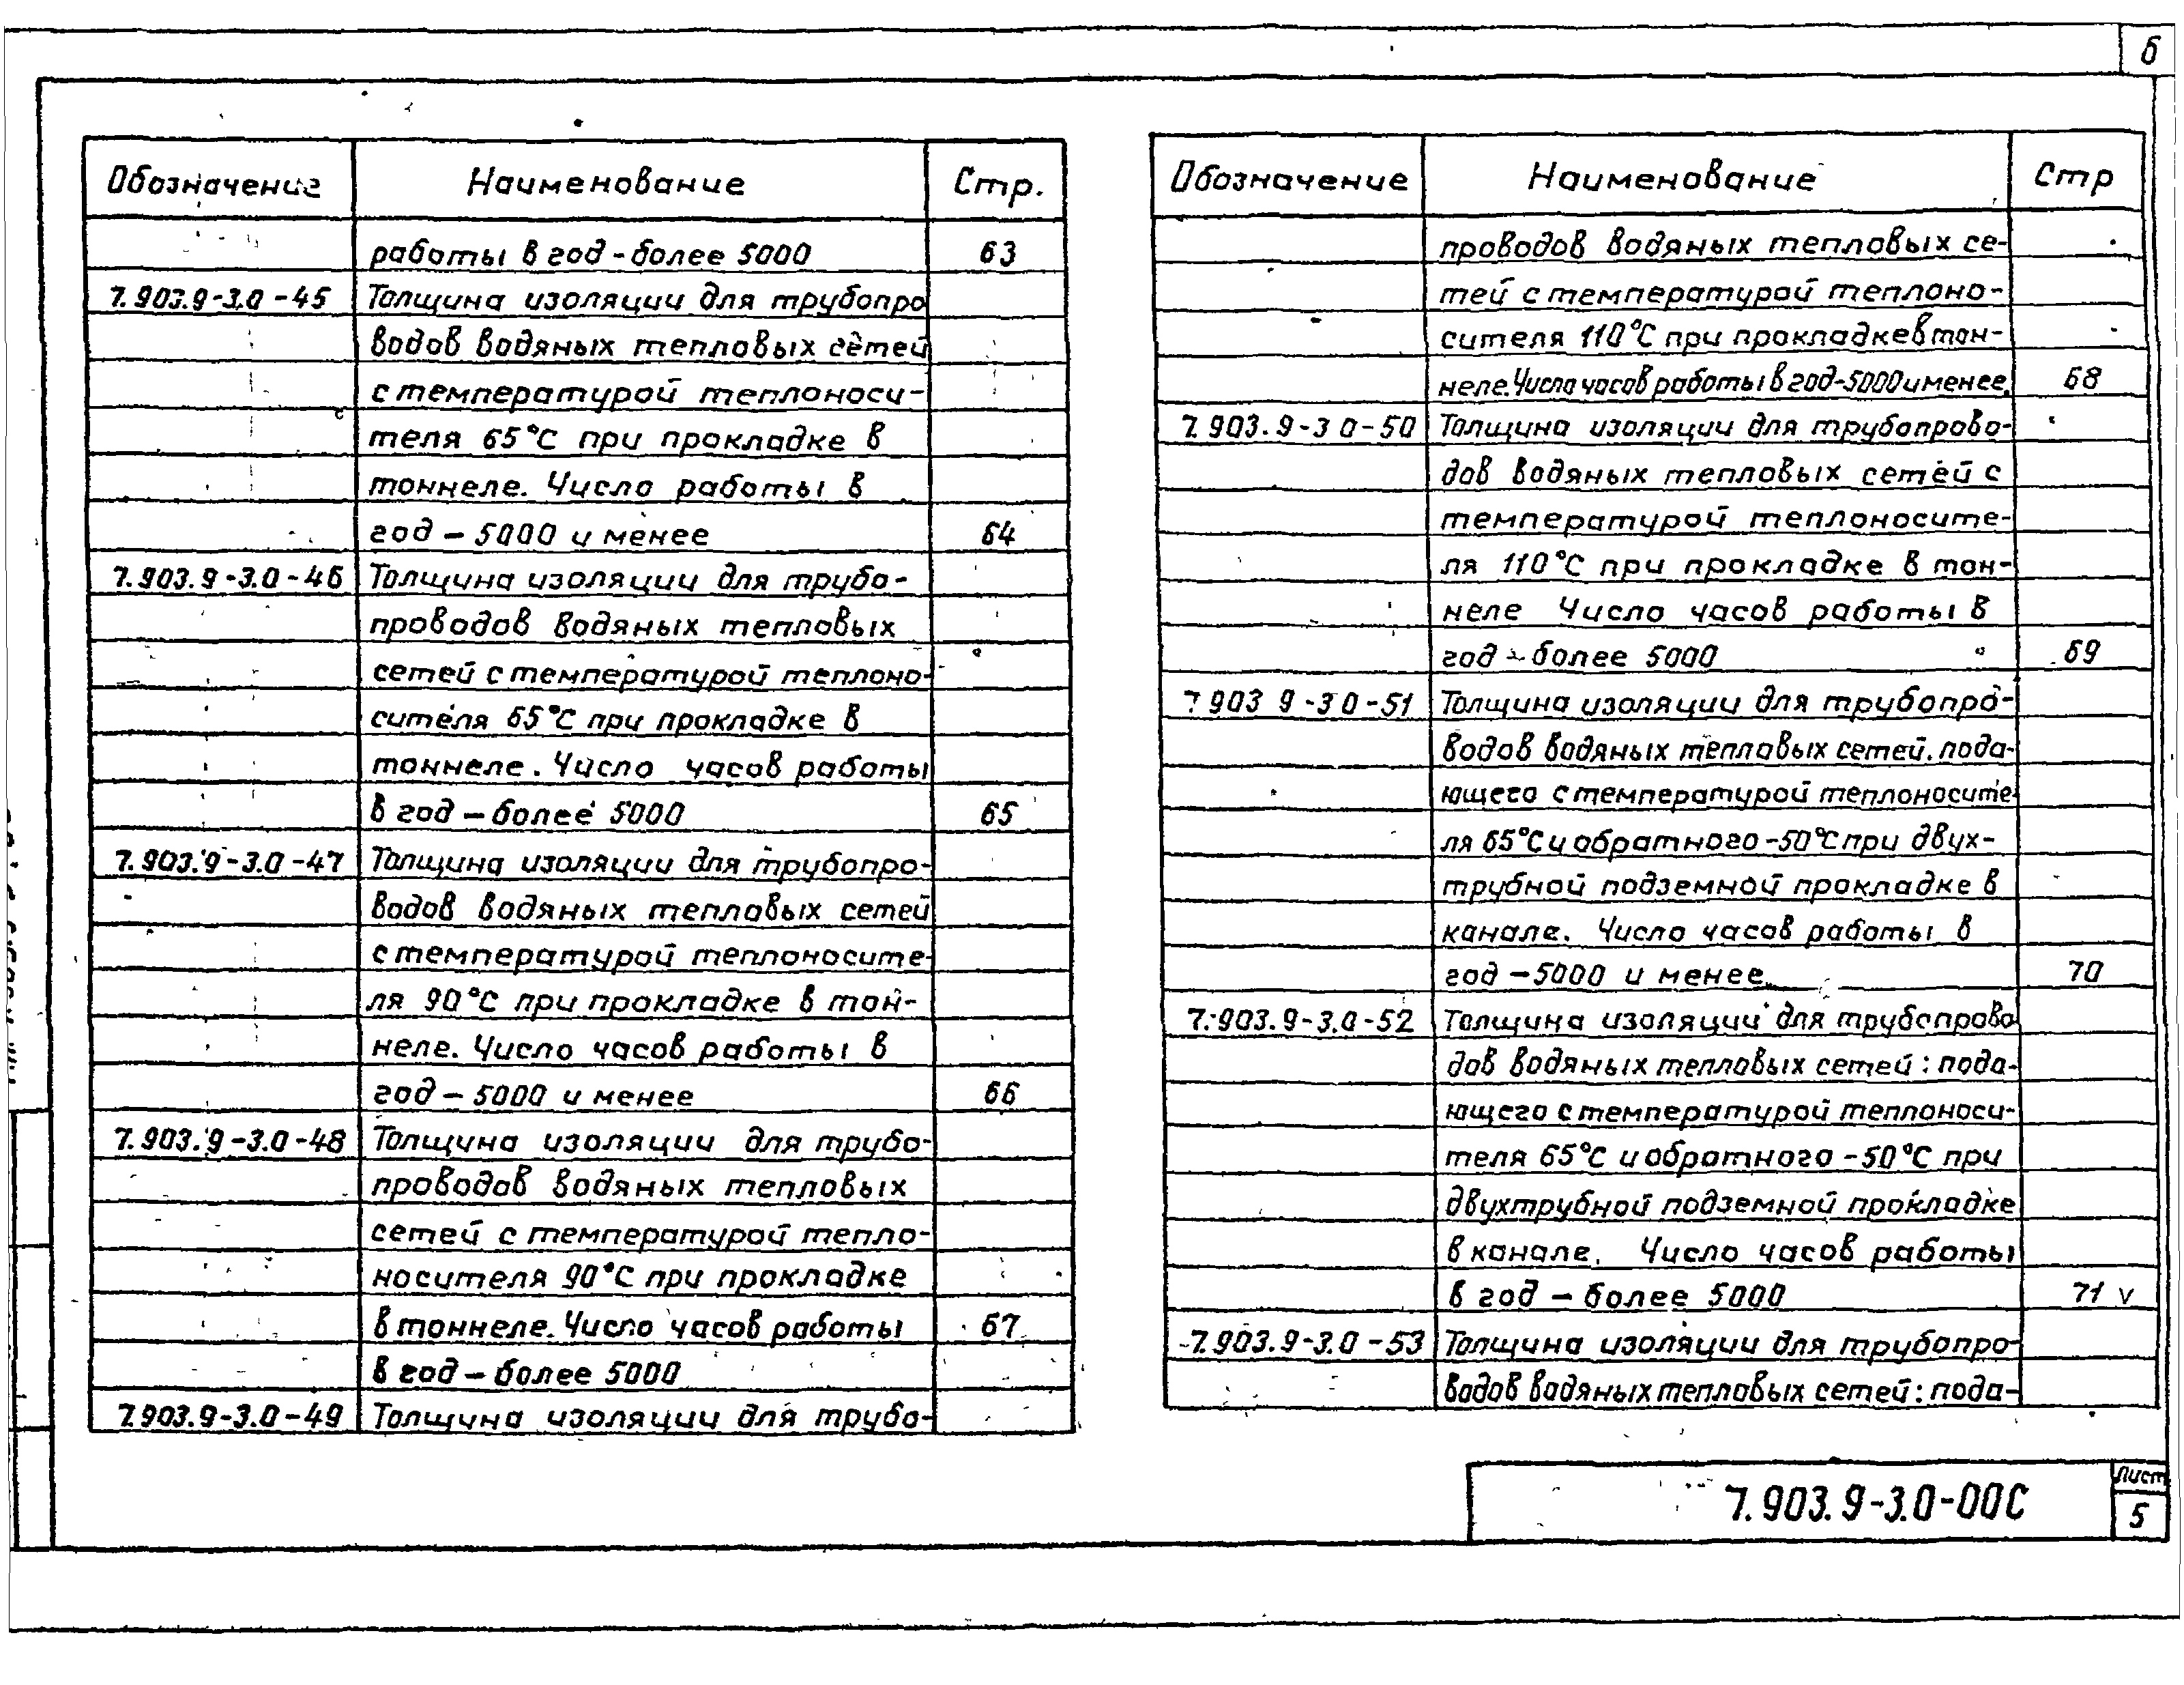 6
Обозначение Наименование Стр.
работы в год - более 5000 63
7.903.9-3.0-45 Толщина изоляции для трубопро
водов водяных тепловых сетей
с температурой теплоноси-
теля 65°С при прокладке в
тоннеле. Число работы в
год - 5000 и менее 64
7.903.9-3.0-46 Толщина изоляции для трубо-
проводов водяных тепловых
сетей с температурой теплоно-
сителя 65°С при прокладке в
тоннеле. Число часов работы
в год - более 5000 65
7.903.9-3.0-47 Толщина изоляции для трубопро-
водов водяных тепловых сетей
с температурой теплоносите-
ля 90°С при прокладке в тон-
неле. Число часов работы в
год - 5000 и менее 66
7.903.9-3.0-48 Толщина изоляции для трубо-
проводов водяных тепловых
сетей с температурой тепло-
носителя 90°С при прокладке
в тоннеле. Число часов работы 67
в год - более 5000
7.903.9-3.0-49 Толщина изоляции для трубо-
Обозначение Наименование Стр
проводов водяных тепловых се-
тей с температурой теплоно-
сителя 110°С при прокладке в тон-
неле. Число часов работы в год-5000 и менее. 68
7.903.9-3 0-50 Толщина изоляции для трубопрово-
дов водяных тепловых сетей с
температурой теплоносите-
ля 110°С при прокладке в тон-
неле Число часов работы в
год - более 5000 69
7 903 9-3 0-51 Толщина изоляции для трубопро-
водов водяных тепловых сетей. пода-
ющего с температурой теплоносите-
ля 65°С и обратного -50°С при двух-
трубной подземной прокладке в
канале. Число часов работы в
год - 5000 и менее 70
7.903.9-3.0-52 Толщина изоляции для трубопрово
дов водяных тепловых сетей: пода-
ющего с температурой теплоноси-
теля 65°С и обратного -50°С при
двухтрубной подземной прокладке
в канале. Число часов работы
в год - более 5000 71 v
7.903.9-3.0-53 Толщина изоляции для трубопро-
водов водяных тепловых сетей: пода-
7.903.9-3.0-00С
Лист
5